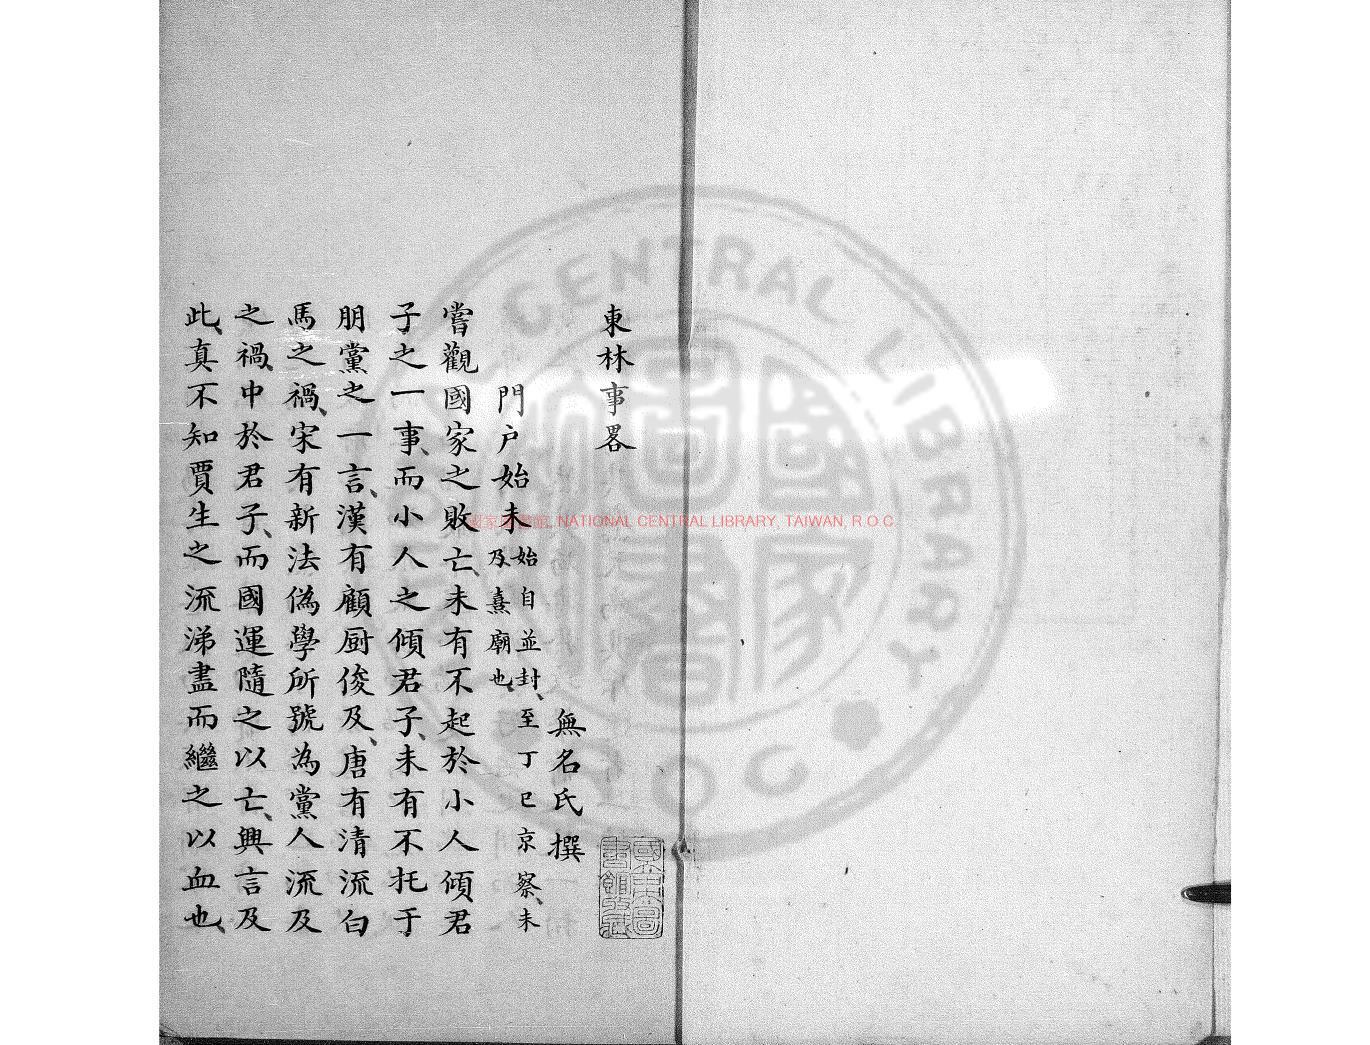 東林事畧
無名氏撰
門户始末始自並封、至丁巳京察、未
及熹廟也、
嘗觀國家之敗亡、未有不起於小人傾君
子之一事、而小人之傾君子、未有不托于
朋黨之一言、漢有顧厨俊及、唐有清流白
馬之禍、宋有新法偽學所號為黨人流及
之禍、中於君子、而國運隨之以亡、興言及
此、真不知賈生之流涕盡而繼之以血也、
國家圖書館, NATIONAL CENTRAL LIBRARY, TAIWAN, R.O.C.
CENTRAL LIBRARY
R.O.C